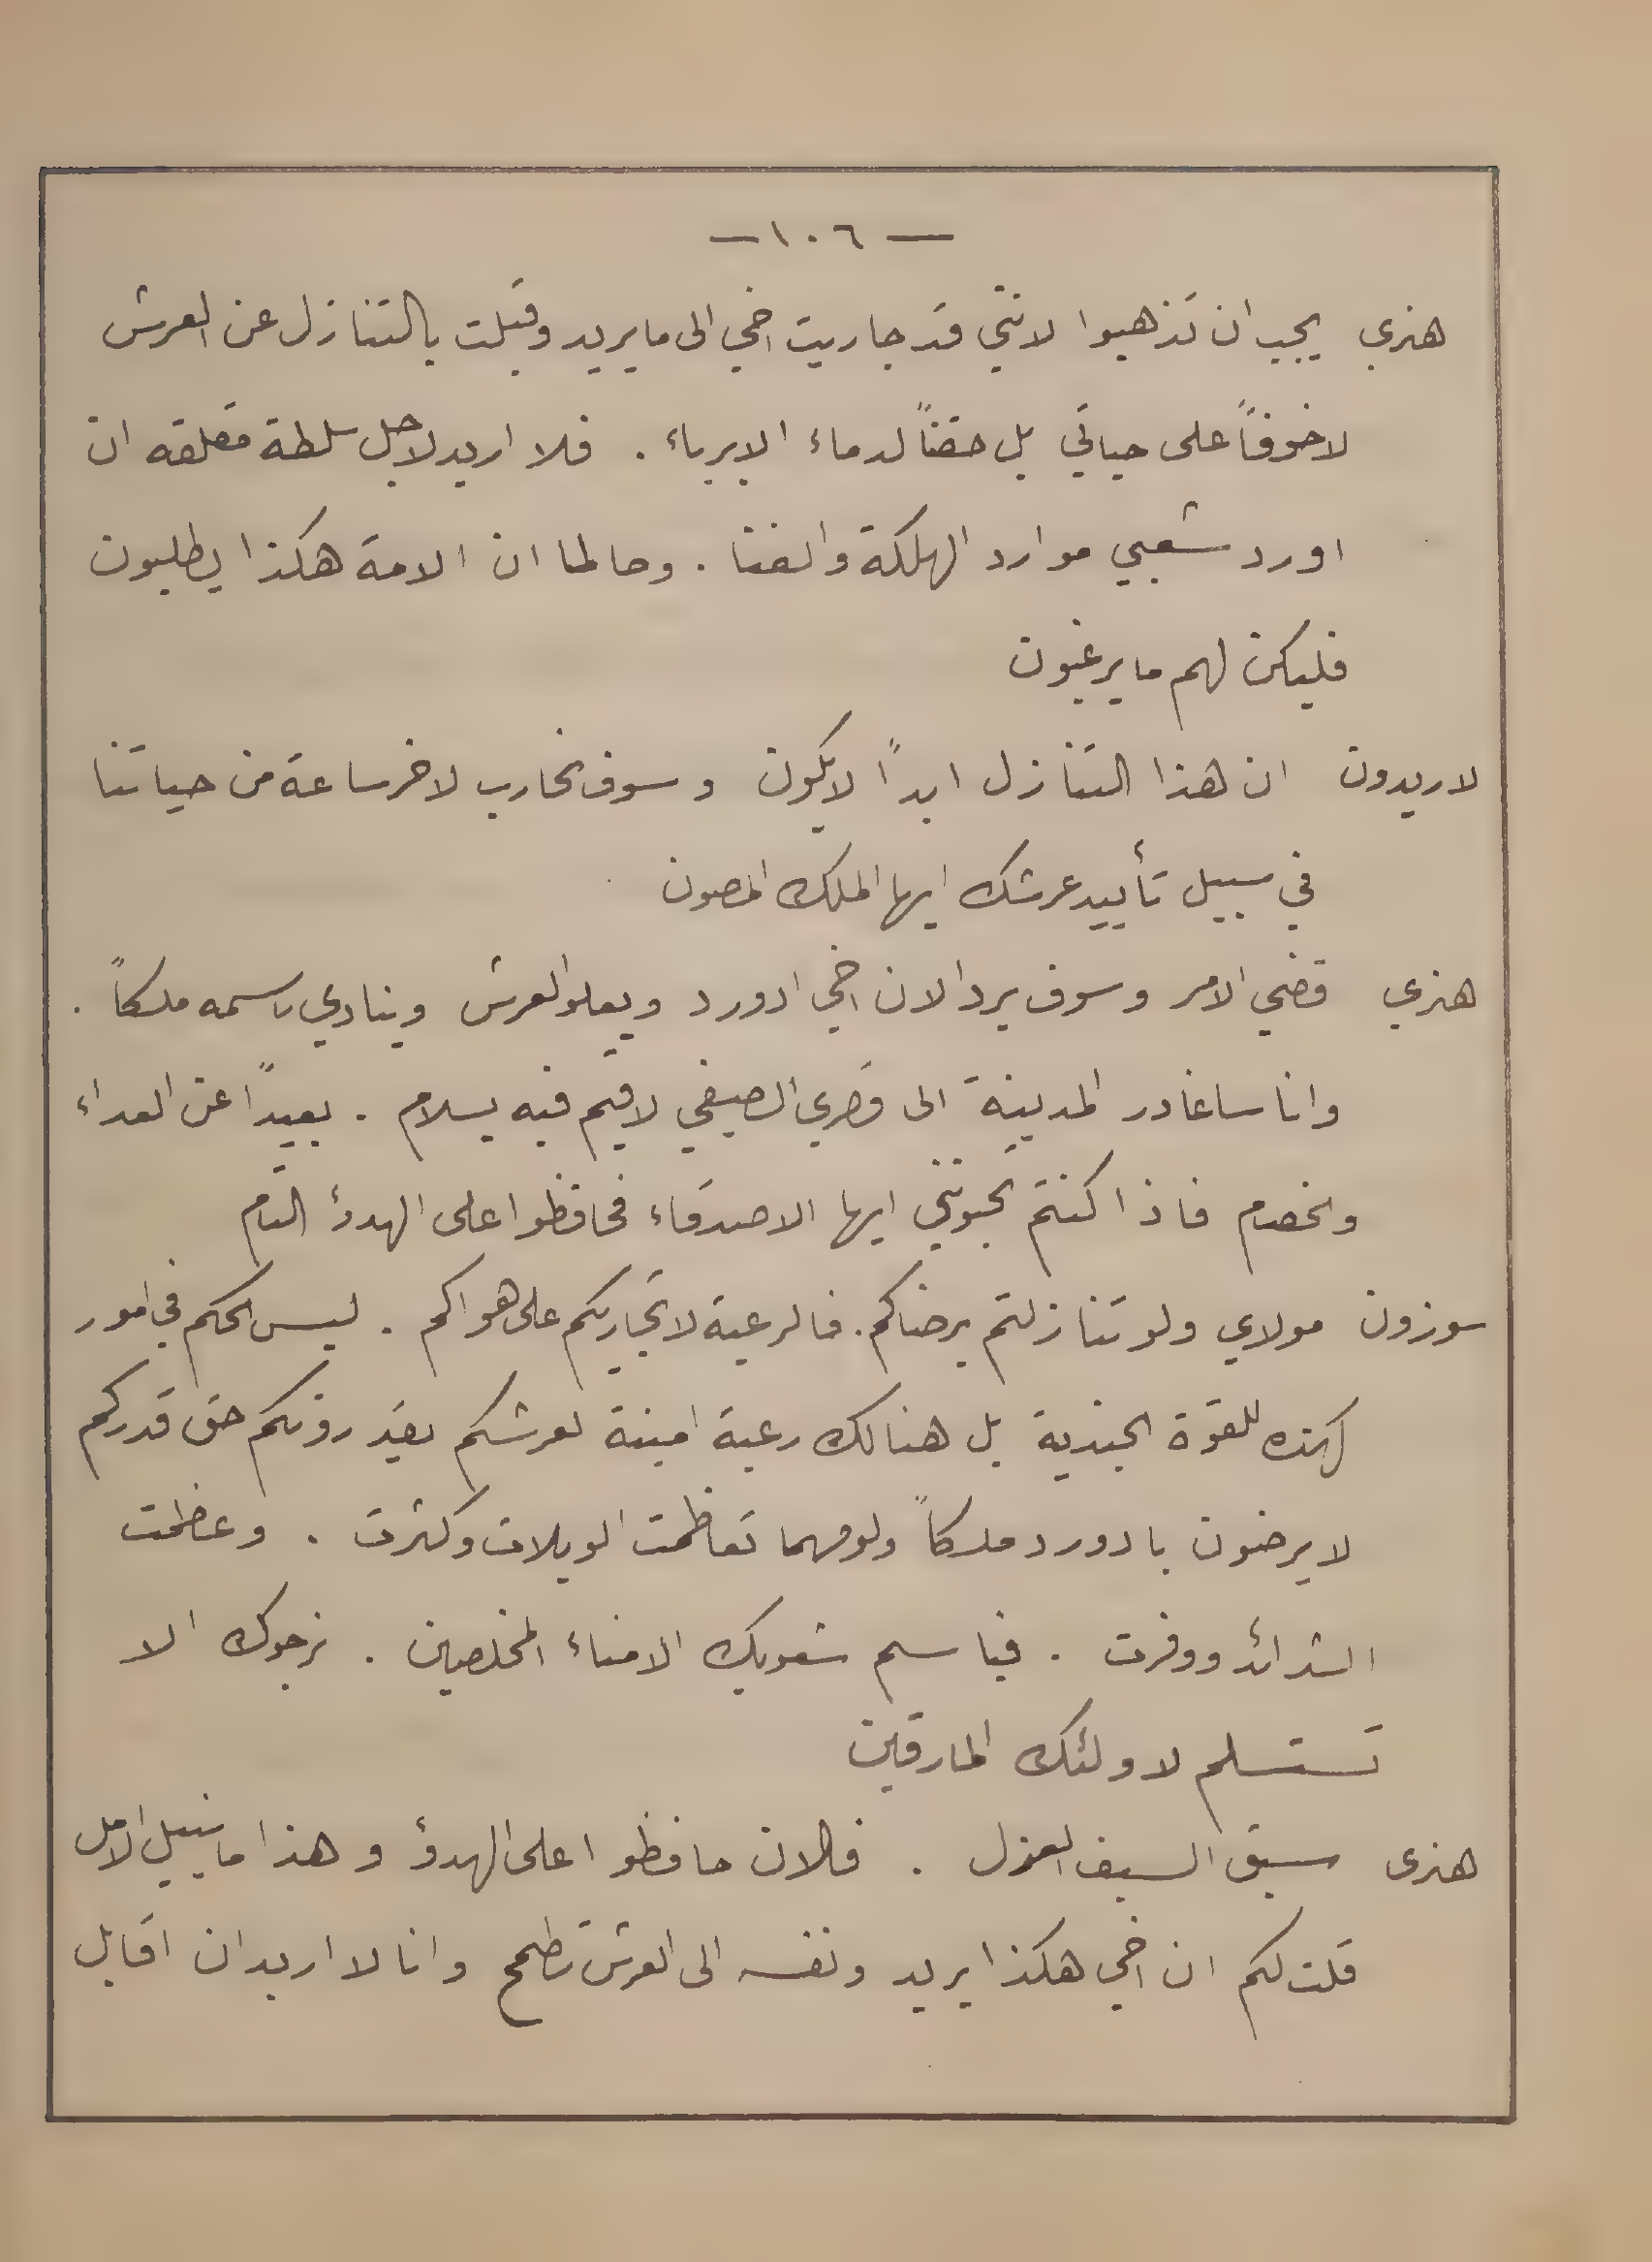 — ١٠٦ —
هنري يجب ان تذهبوا لانني قد جاريت اخي الى ما يريد وقبلت بالتنازل عن العرش
لاخوفاً على حياتي بل حقناً لدماء الابرياء . فلا اريد لاجل سلطة مقلقه ان
اورد شعبي موارد الهلكة والفنا . وحالما ان الامة هكذا يطلبون
فليكن لهم ما يرغبون
لاريدون ان هذا التنازل ابداً لايكون و سوف نحارب لاخر ساعة من حياتنا
في سبيل تأييد عرشك ايها الملك المصون
هنري قضي الامر وسوف يرد الان اخي ادورد ويعلو العرش وينادي باسمه ملكاً .
وانا ساغادر المدينة الى قصري الصيفي لاقيم فيه بسلام . بعيداً عن العداء
والخصام فاذا كنتم تحبونني ايها الاصدقاء فحافظوا على الهدؤ التام
سوزون مولاي ولو تنازلتم برضاكم . فالرعية لاتجاريكم على هواكم . ليس الحكم في امور
كهذه للقوة الجندية بل هنالك رعية امينة لعرشكم يقدرونكم حق قدركم
لا يرضون بادورد ملكاً ولو مهما تعاظمت الويلات وكثرت . وعظمت
الشدائد ووفرت . فباسم شعوبك الامناء المخلصين . نرجوك الا
تستسلم لاولئك المارقين
هنرى سبق السيف العزل . فالان حافظوا على الهدؤ وهذا ما ينيل الامل
قلت لكم ان اخي هكذا يريد ونفسه الى العرش تطمح وانا لا اريد ان اقابل